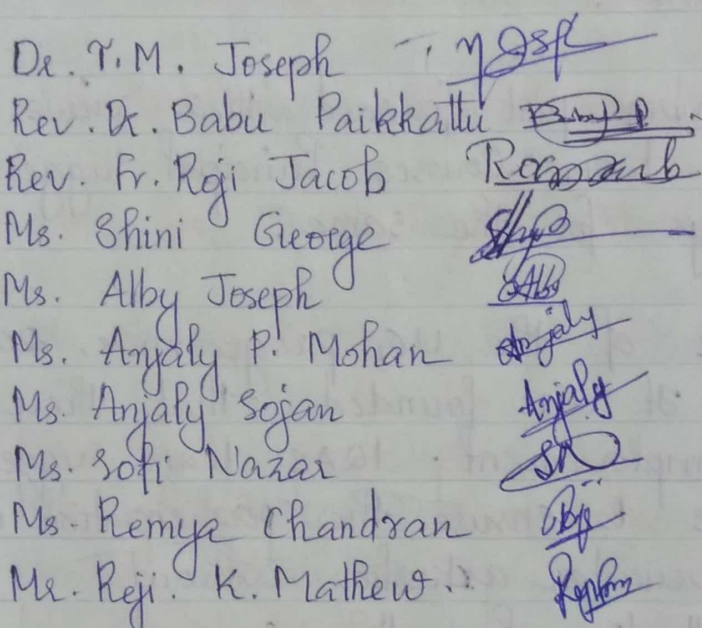 Dr. T.M. Joseph
Rev. Dr. Babu Paikkattu
Rev. Fr. Roji Jacob
Ms. Shini George
Ms. Alby Joseph Alby
Ms. Anjaly P. Mohan Anjaly
Ms. Anjaly Sojan Anjaly
Ms. Sofi Nazar
Ms. Remya Chandran
Mr. Reji. K. Mathew